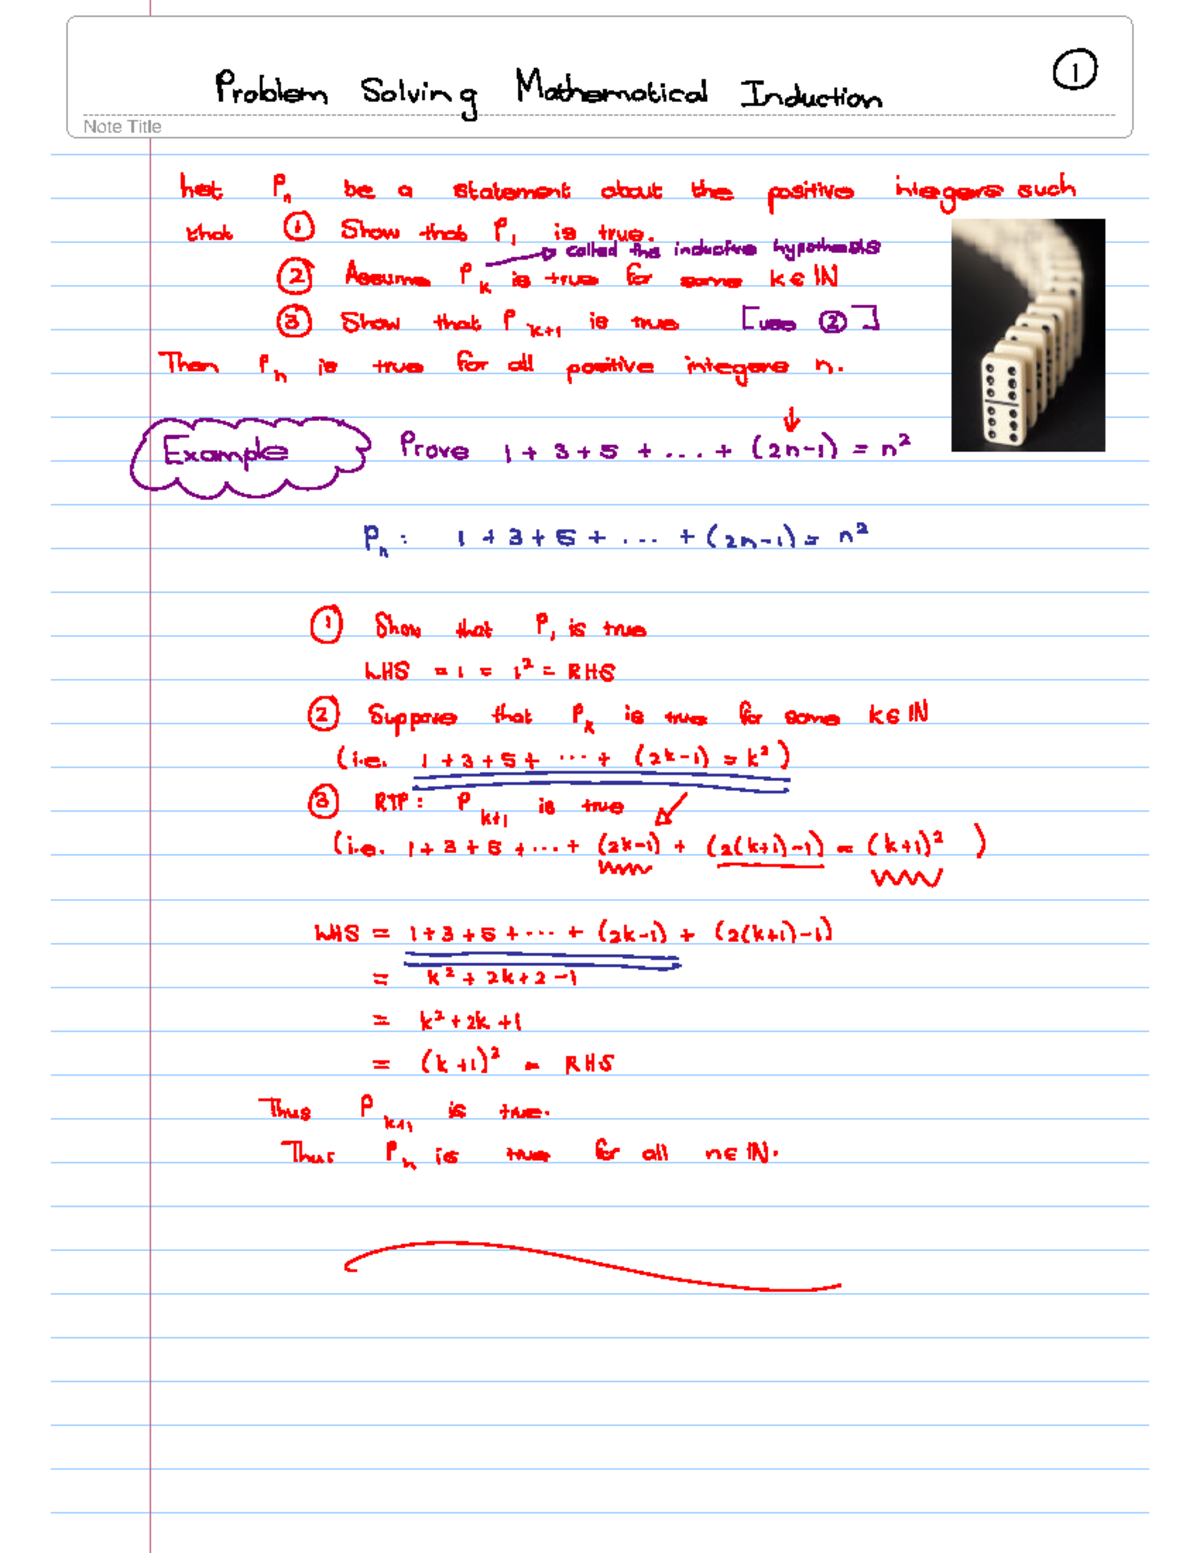 Problem Solving Mathematical Induction
1
Note Title
Let Pₙ be a statement about the positive integers such
that ① Show that P₁ is true.
called the inductive hypothesis
② Assume Pₖ is true for some k ∈ ℕ
③ Show that Pₖ₊₁ is true [use ②]
Then Pₙ is true for all positive integers n.
Example Prove 1 + 3 + 5 + ... + (2n-1) = n²
Pₙ : 1 + 3 + 5 + ... + (2n-1) = n²
① Show that P₁ is true
LHS = 1 = 1² = RHS
② Suppose that Pₖ is true for some k ∈ ℕ
(i.e. 1 + 3 + 5 + ... + (2k-1) = k²)
③ RTP: Pₖ₊₁ is true
(i.e. 1 + 3 + 5 + ... + (2k-1) + (2(k+1)-1) = (k+1)² )
LHS = 1 + 3 + 5 + ... + (2k-1) + (2(k+1)-1)
= k² + 2k + 2 - 1
= k² + 2k + 1
= (k+1)² = RHS
Thus Pₖ₊₁ is true.
Thus Pₙ is true for all n ∈ ℕ.